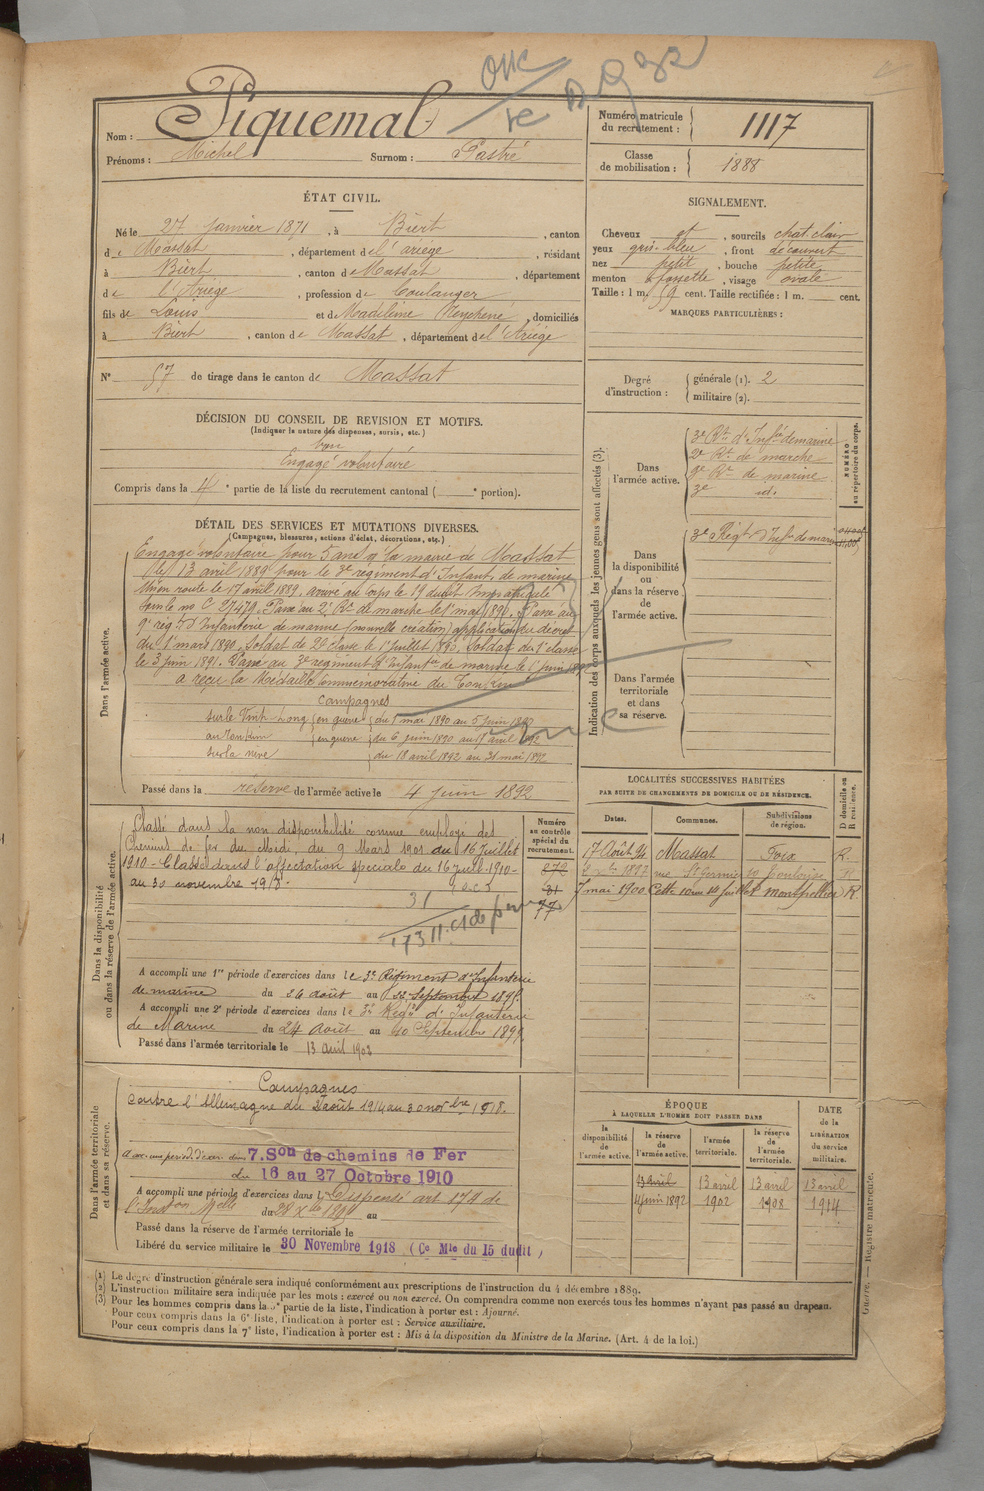 Nom : Piquemal
Prénoms : Michel Surnom : Pastré
Numéro matricule du recrutement : 1117
Classe de mobilisation : 1888
ÉTAT CIVIL.
Né le 27 janvier 1871, à Biert, canton
de Massat, département de l'ariége, résidant
à Biert, canton de Massat, département
de l'Ariège, profession de boulanger
fils de Louis et de Madeleine, domiciliés
à Biert, canton de Massat, département de l'Ariége
N° 57 de tirage dans le canton de Massat
SIGNALEMENT.
Cheveux, sourcils chat. clair
yeux gris-bleu, front découvert
nez petit, bouche petite
menton à fossette, visage ovale
Taille : 1 m. 59 cent. Taille rectifiée : 1 m. cent.
MARQUES PARTICULIÈRES :
Degré d'instruction : générale (1). 2
militaire (2).
DÉCISION DU CONSEIL DE REVISION ET MOTIFS.
(Indiquer la nature des dispenses, sursis, etc.)
bon
Engagé volontaire
Compris dans la 4e partie de la liste du recrutement cantonal ( e portion).
DÉTAIL DES SERVICES ET MUTATIONS DIVERSES.
(Campagnes, blessures, actions d'éclat, décorations, etc.)
Dans l'armée active.
Engagé volontaire pour 5 ans à la mairie de Massat
le 13 avril 1889 pour le 3e régiment d'Infant. de marine
Mis en route le 17 avril 1889. arrivé au corps le 19 dudit Immatriculé
sous le no C 27479. Passé au 2e Rt de marche le 1er mai 1890. Passé au
9e régt d'Infanterie de marine (nouvelle création) application du décret
du 1er mars 1890. Soldat de 2e classe le 1er juillet 1890. Soldat de 1e classe
le 3 juin 1891. Passé au 3e régiment d'Infantie de marine le 1 juin 1892
a reçu la Médaille commémorative du Tonkin
Campagnes
sur le Vinh-Long (en guerre) du 1er mai 1890 au 5 juin 1890
au Tonkin (en guerre) du 6 juin 1890 au 17 avril 1892
du 18 avril 1892 au 31 mai 1892
Passé dans la réserve de l'armée active le 4 juin 1892
Indication des corps auxquels les jeunes gens sont affectés (3).
NUMÉRO au répertoire du corps.
Dans l'armée active.
3e Rt d'Infie de marine
2e Rt de marche
9e Rt de marine
3e id.
Dans la disponibilité ou dans la réserve de l'armée active.
3e Régt d'Infie de marine
Dans l'armée territoriale et dans sa réserve.
LOCALITÉS SUCCESSIVES HABITÉES
PAR SUITE DE CHANGEMENTS DE DOMICILE OU DE RÉSIDENCE.
Dates. Communes. Subdivisions de région. D domicile ou R résidence.
17 Août 94 Massat Foix R.
Toulouse R
7 mai 1900 Cette Montpellier R.
Dans la disponibilité ou dans la réserve de l'armée active.
Numéro au contrôle spécial du recrutement.
Classé dans la non disponibilité comme employé des
Chemins de fer du Midi, du 9 Mars 1901 au 16 Juillet
1910 - Classé dans l'affectation spéciale du 16 juill. 1910 -
au 30 novembre 1918.
31
77
A accompli une 1re période d'exercices dans le 3e Régiment d'Infanterie
de marine du 26 août au 22 Septembre 1895
A accompli une 2e période d'exercices dans le 3e Régt d'Infanterie
de Marine du 24 Août au 20 Septembre 1899.
Passé dans l'armée territoriale le 13 avril 1903
Dans l'armée territoriale et dans sa réserve.
Campagnes
Contre l'Allemagne du 2 août 1914 au 30 novbre 1918.
7. Son de chemins de Fer
du 16 au 27 Octobre 1910
A accompli une période d'exercices dans l Dispensé art 179 de
du au
Passé dans la réserve de l'armée territoriale le
Libéré du service militaire le 30 Novembre 1918 (Ce Mle du 15 dudit)
ÉPOQUE
À LAQUELLE L'HOMME DOIT PASSER DANS
DATE de la LIBÉRATION du service militaire.
la disponibilité de l'armée active. la réserve de l'armée active. l'armée territoriale. la réserve de l'armée territoriale.
13 avril 13 avril 13 avril 13 avril
4 juin 1892 1902 1908 1914
(1) Le degré d'instruction générale sera indiqué conformément aux prescriptions de l'instruction du 4 décembre 1889.
(2) L'instruction militaire sera indiquée par les mots : exercé ou non exercé. On comprendra comme non exercés tous les hommes n'ayant pas passé au drapeau.
(3) Pour les hommes compris dans la 5e partie de la liste, l'indication à porter est : Ajourné.
Pour ceux compris dans la 6e liste, l'indication à porter est : Service auxiliaire.
Pour ceux compris dans la 7e liste, l'indication à porter est : Mis à la disposition du Ministre de la Marine. (Art. 4 de la loi.)
Guerre. — Registre matricule.